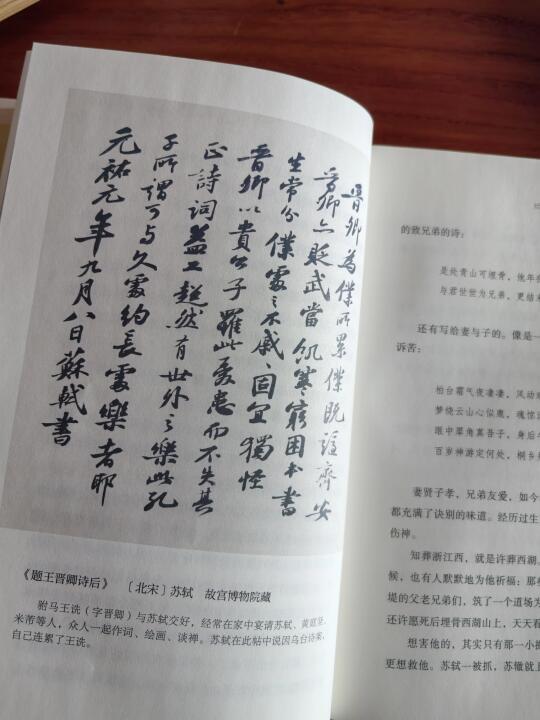 晋卿為僕所累僕既謫齊安
晋卿亦貶武當飢寒窮困本書
生常分僕處之不戚〻固宜獨怪
晋卿以貴公子罹此憂患而不失其
正詩詞益工超然有世外之樂此孔
子所謂可與久處約長處樂者耶
元祐元年九月八日蘇軾書
《题王晋卿诗后》 〔北宋〕苏轼 故宫博物院藏
驸马王诜（字晋卿）与苏轼交好，经常在家中宴请苏轼、黄庭坚、
米芾等人，众人一起作词、绘画、谈禅。苏轼在此帖中说因乌台诗案，
自己连累了王诜。
的致兄弟的诗：
是处青山可埋骨，他年
与君世世为兄弟，更结
还有写给妻与子的。像是一
诉苦：
柏台霜气夜凄凄，风动
梦绕云山心似鹿，魂惊
眼中犀角真吾子，身后
百岁神游定何处，桐乡
妻贤子孝，兄弟友爱，如今
都充满了诀别的味道。经历过生
伤神。
知葬浙江西，就是许葬西湖。
候，也有人默默地为他祈福：那些
堤的父老兄弟们，筑了一个道场为
还许愿死后埋骨西湖山上，天天看
想害他的，其实只有那一小撮
更想救他。苏轼一被抓，苏辙就